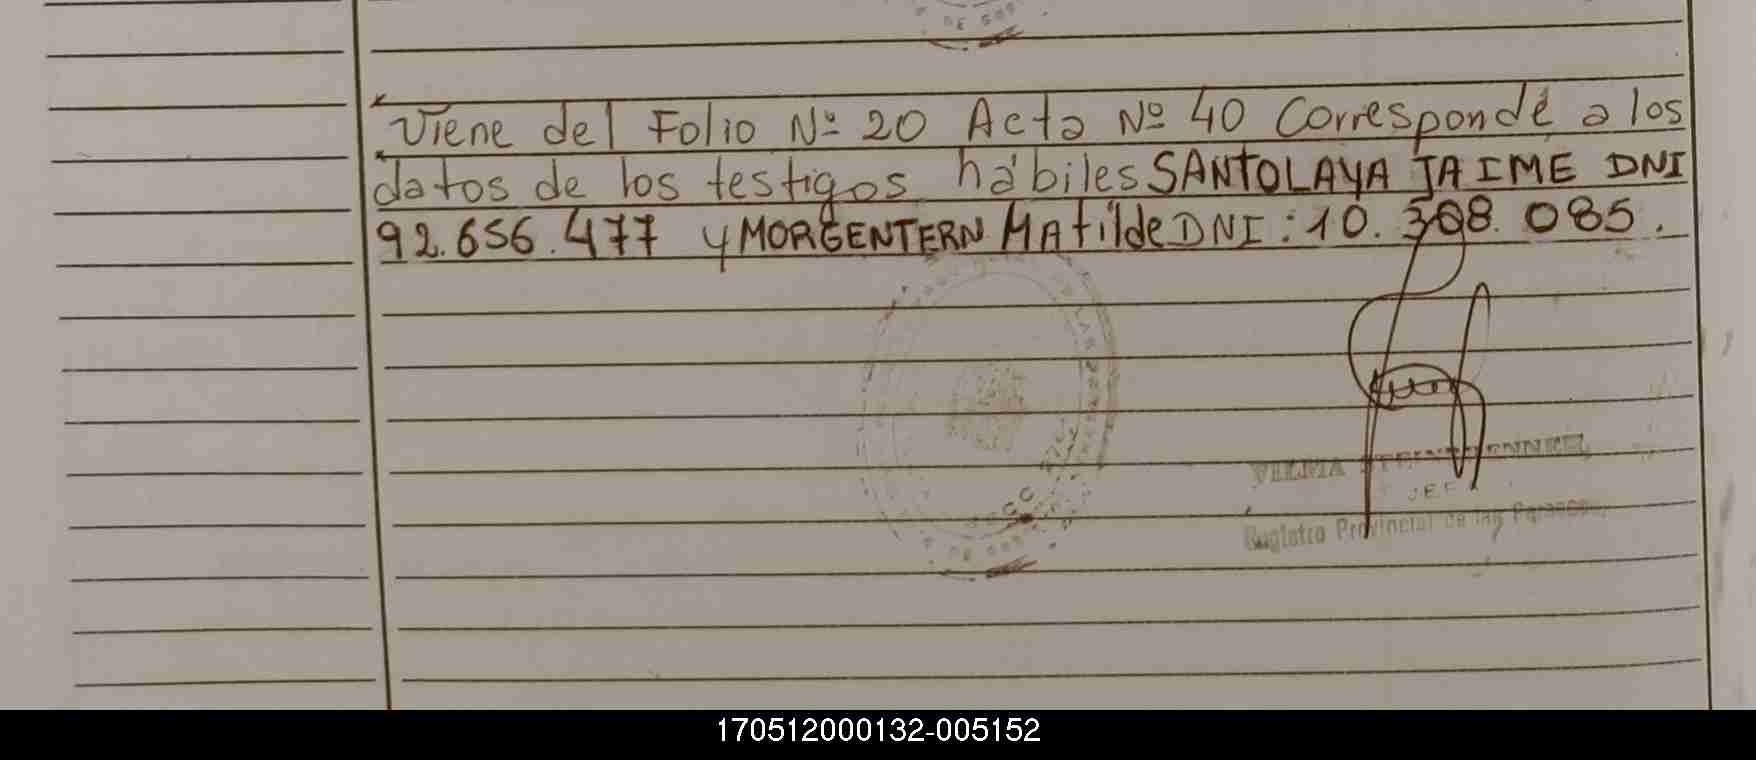 DE GOB
Viene del Folio Nº 20 Acta Nº 40 Corresponde a los
datos de los testigos hábiles SANTOLAYA JAIME DNI
92.656.477 y MORGENTERN MAtilde DNI: 10.308.085.
VILMA
JEF
Registro Provincial de las Personas
DE GOB
170512000132-005152